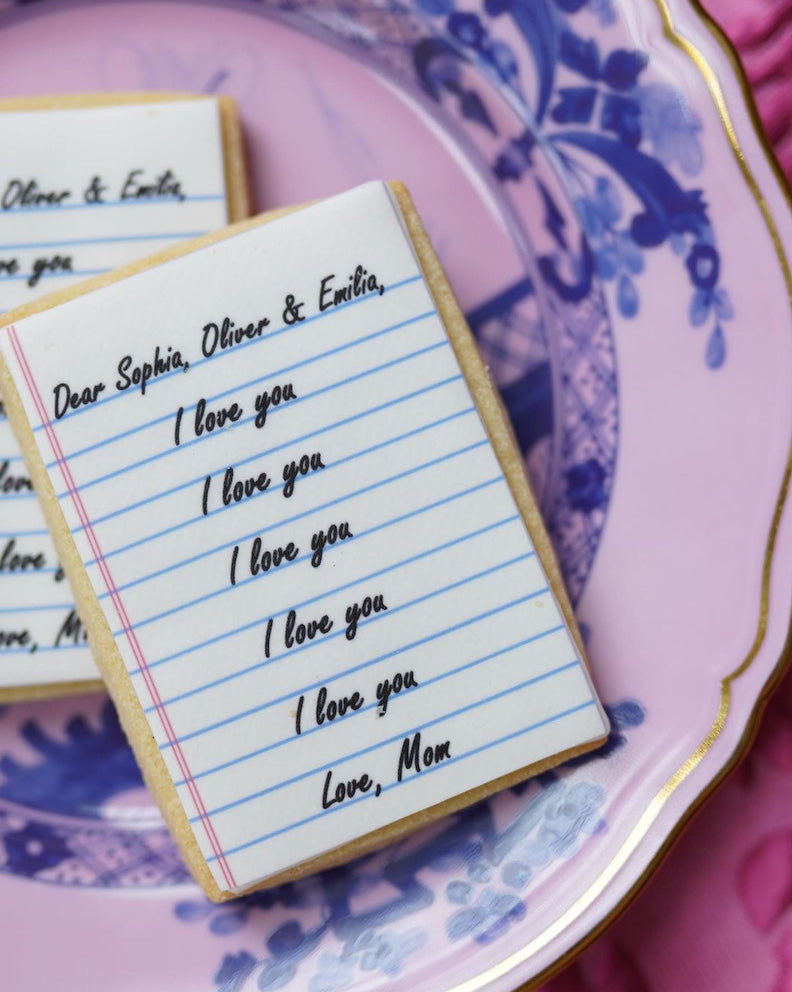 Oliver & Emilia,
you
love
love
Dear Sophia, Oliver & Emilia,
I love you
I love you
I love you
I love you
I love you
Love, Mom